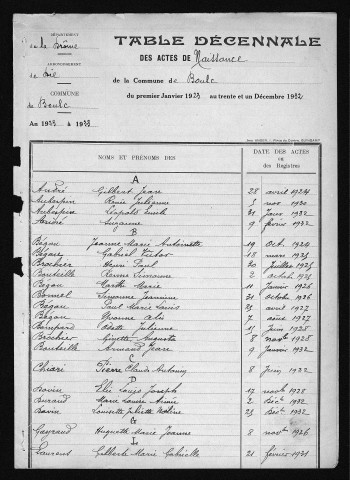 DÉPARTEMENT
de la Drôme
ARRONDISSEMENT
de Die
COMMUNE
de Boulc
An 1923 à 1933
TABLE DÉCENNALE
DES ACTES DE Naissance
de la Commune de Boulc
du premier Janvier 1923 au trente et un Décembre 1932
NOMS ET PRÉNOMS DES
DATE DES ACTES
ou
des Registres
A
André Gilbert Jean 28 avril 1924
Renée Julienne 5 nov 1930
Léopold Emile 21 Janv 1932
André Suzanne 9 février 1932
B
Bégou Jeanne Marie Antoinette 19 Oct. 1924
Gabriel Victor 18 mars 1925
Brochier Henri Paul 20 Juillet 1925
Bouteille Renée Simonne 2 octobre 1925
Begou Marthe Marie 11 Janvier 1926
Bonnet Simonne Jeannine 31 octobre 1926
Begou Paul Marie Louis 25 avril 1927
Begou Yvonne 7 août 1927
Odette Julienne 11 Juin 1928
Brochier Ginette Augusta 8 novb 1928
Bouteille Armand Jean 9 Janvier 1932
C
Pierre Claude Antonin 8 Juin 1932
D
Elie Louis Joseph 17 novb 1928
Durand Marie Louise Aimée 2 Déc 1932
Louisette Juliette 25 Déc 1932
G
Gayraud Huguette Marie Jeanne 8 novb 1926
L
Laurens Gilberte Marie Gabrielle 21 février 1931